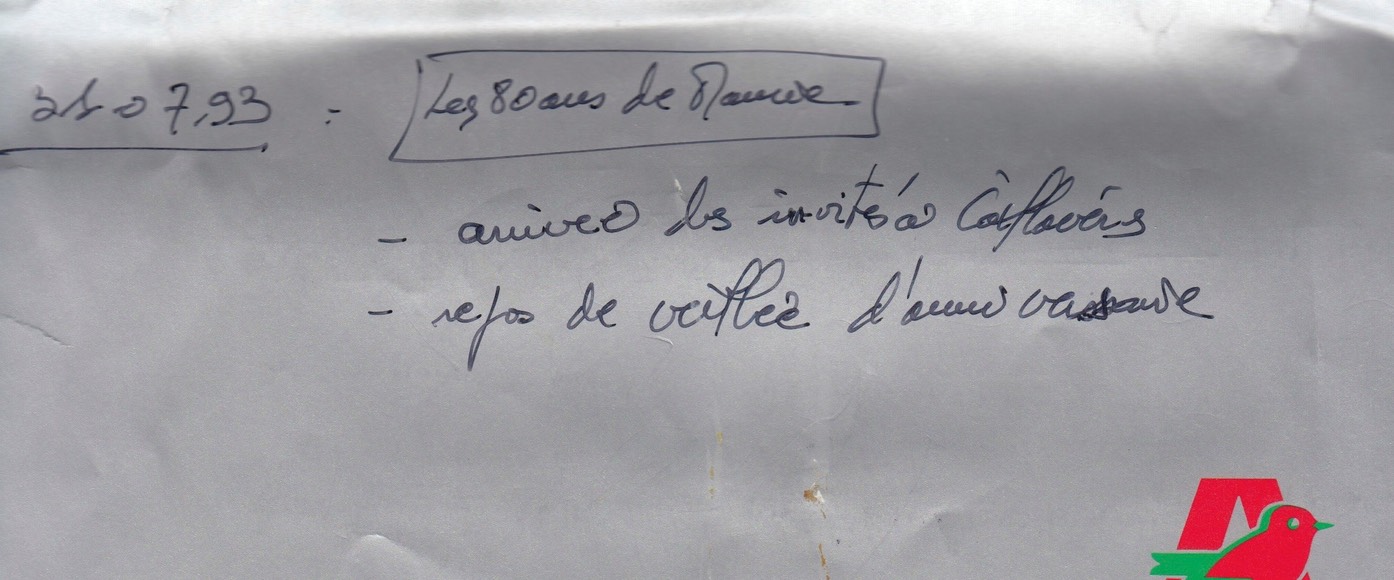 07.93 : Les 80 ans de Mamie
- arrivée des invités à
- repos de veillée d'anniversaire